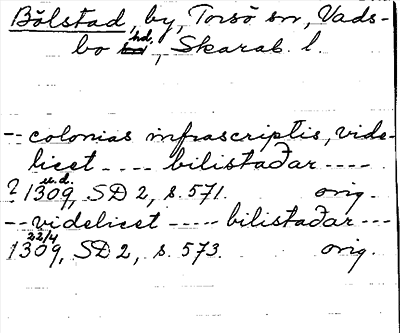 Bölstad, by, Torsö sn, Vads-
bo hd, Skarab. l.
-- colonias infrascriptis, vide-
licet ---- bilistaðar ----
? 1309 u.d., SD 2, s. 571. orig.
-- videlicet ----- bilistaðar ---
1309 22/4, SD 2, s. 573. orig.